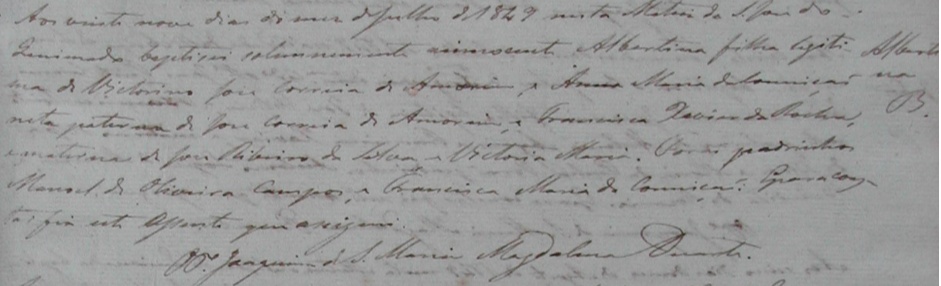 Aos vinte nove dias do mez de Julho de 1849 nesta Matriz de S. Jose do
baptizei solemnemente a innocente Albertina filha legiti
ma de Victorino Jose Correia de Amorim, e Anna Maria da Conceiçaõ
neta paterna de Jose Correia de Amorim, e Francisca Xavier da Rocha,
e materna de Jose Ribeiro da Silva e Victoria Maria. Foraõ padrinhos
Manoel de Oliveira Campos, e Francisca Maria da Conceiçaõ. E para cons
tar fiz este Assento que assignei.
Joaquim de S. Maria Magdalena Duarte.
Alberti
na
B.